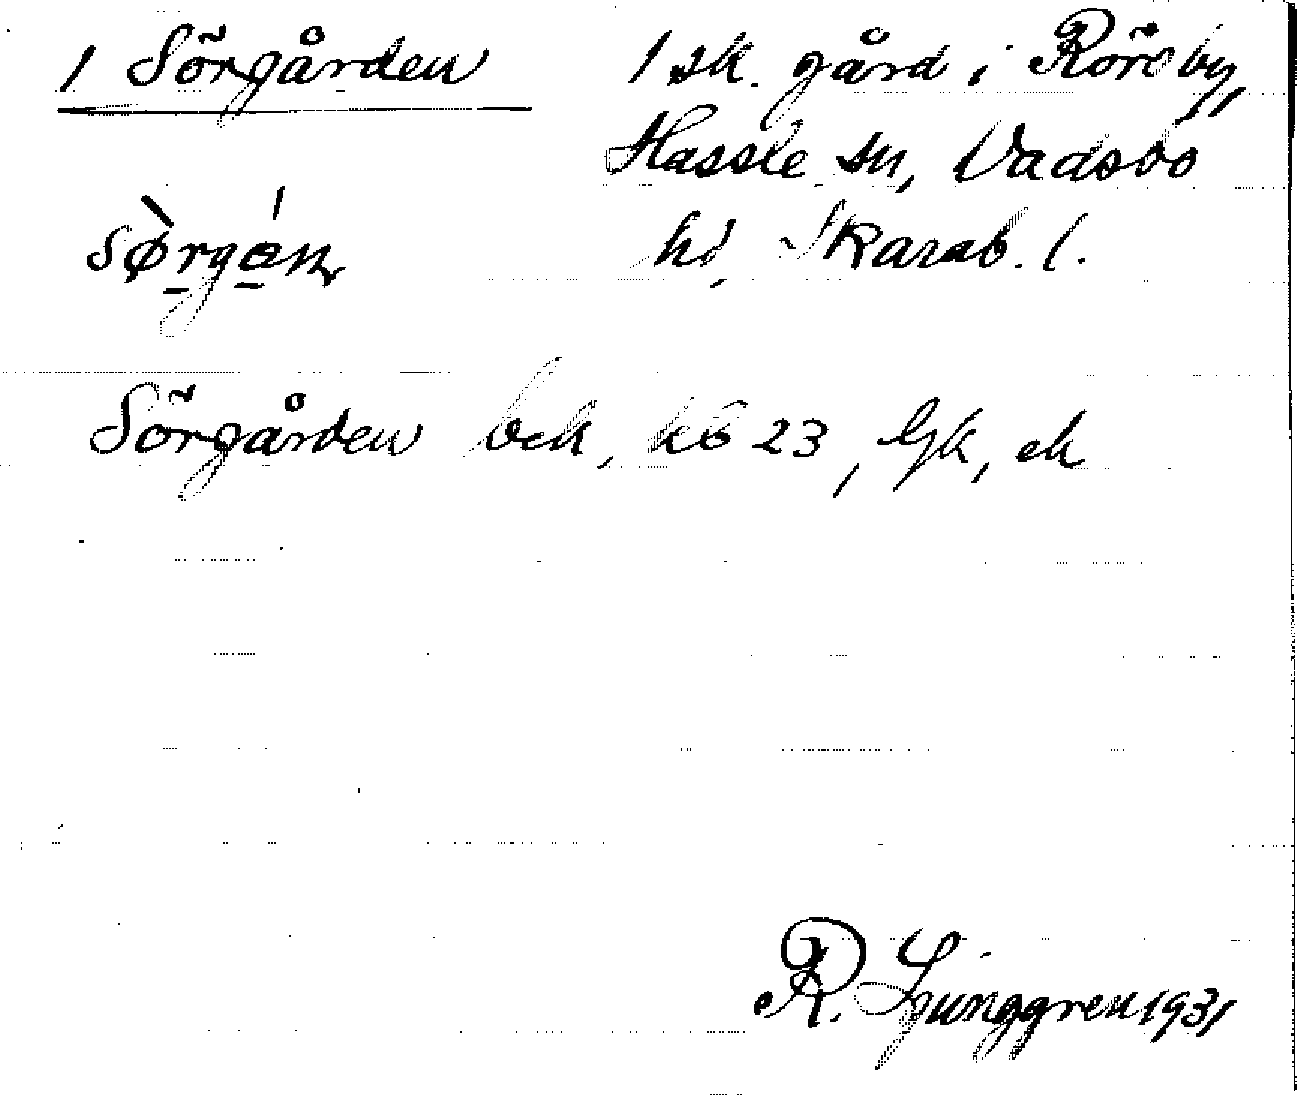 1 Sörgården
1 sk. gård i Rörs by,
Hassle sn, Vadsbo
hd, Skarab. l.
sørgɑn
Sörgården bek, kb 23, Gk, ek
R. Ljunggren 1931